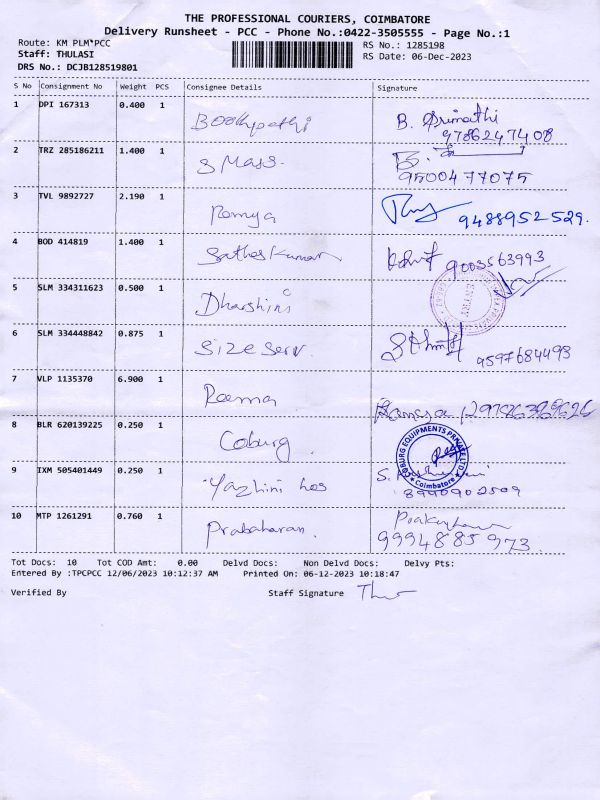 THE PROFESSIONAL COURIERS, COIMBATORE
Delivery Runsheet - PCC - Phone No.:0422-3505555 - Page No.:1
Route: KM PLM*PCC
RS No.: 1285198
Staff: THULASI
RS Date: 06-Dec-2023
DRS No.: DCJB128519801
S No Consignment No Weight PCS Consignee Details Signature
1 DPI 167313 0.400 1 Boothpathi B. Srimathi
9786247408
2 TRZ 285186211 1.400 1 S Mass.
9500477075
3 TVL 9892727 2.190 1 Ramya
9488952529.
4 BOD 414819 1.400 1 Sathes Kumar
9003563993
5 SLM 334311623 0.500 1 Dharshini C
6 SLM 334448842 0.875 1 Size Serv.
9597684493
7 VLP 1135370 6.900 1 Reema
8 BLR 620139225 0.250 1 Coburg
COBURG EQUIPMENTS PRIVATE LTD
Coimbatore
9 IXM 505401449 0.250 1 Yazhini hos S.
8940902509
10 MTP 1261291 0.760 1 Prabaharan.
9994885973.
Tot Docs: 10 Tot COD Amt: 0.00 Delvd Docs: Non Delvd Docs: Delvy Pts:
Entered By :TPCPCC 12/06/2023 10:12:37 AM Printed On: 06-12-2023 10:18:47
Verified By Staff Signature